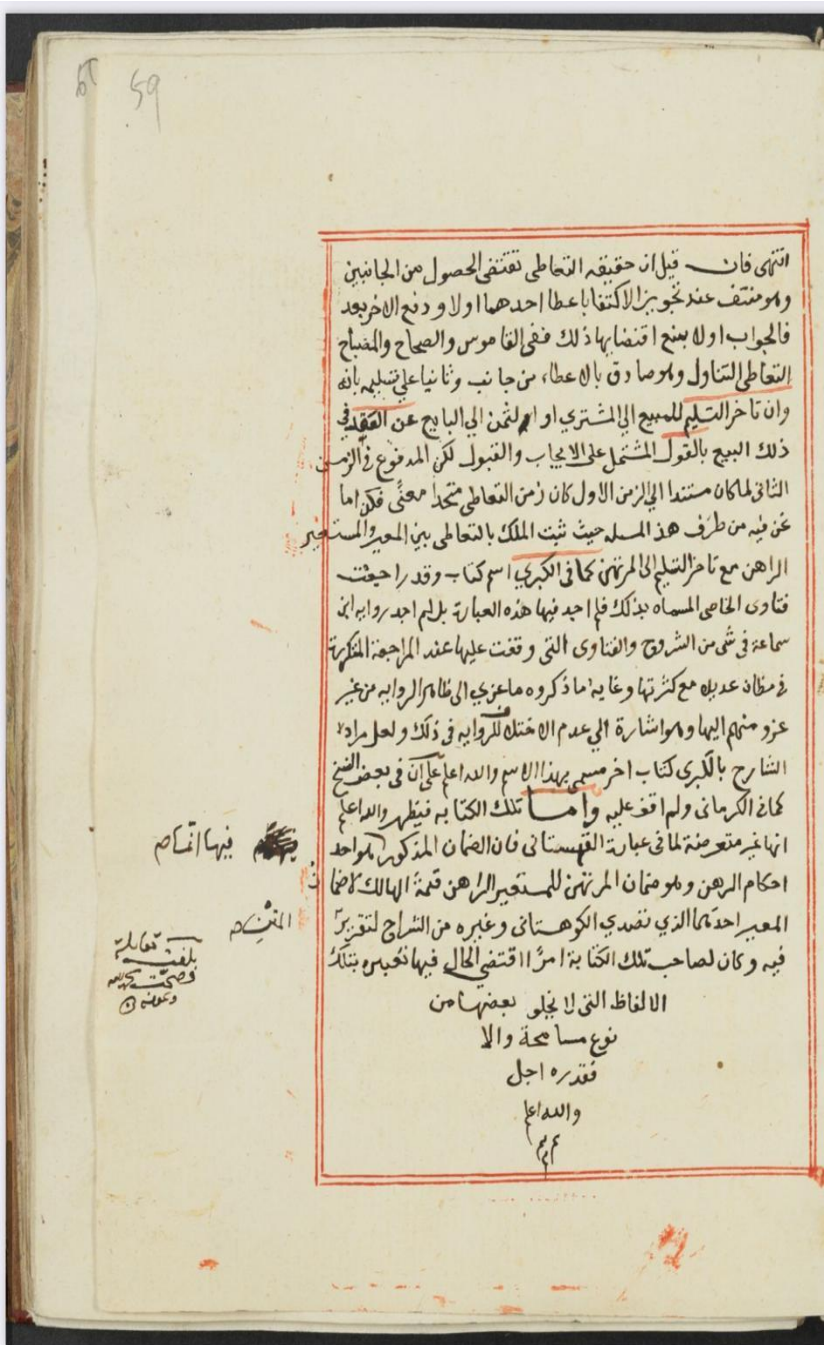 59
انتهى فان قيل ان حقيقه التعاطى تقتضى الحصول من الجانبين
وهو منتف عند تجويز الاكتفا باعطا احدهما اولا ودفع الاخر بعد
فالجواب اولا بمنع اقتضايها ذلك ففى القاموس والصحاح والمصباح
التعاطى التناول وهو صادق بالاعطاء من جانب وثانيا على تسليمه بانه
وان تاخر التسليم للمبيع الي المشتري او الثمن الي البايع عن العقد في
ذلك البيع بالقول المشتمل على الايجاب والقبول لكن المدفوع فى الزمن
الثانى لما كان مستندا الي الزمن الاول كان زمن التعاطى متحدا معنًى فكن اما
نحن فيه من طرف هذ المسله حيث ثبت الملك بالتعاطى بين المعير والمستعير
الراهن مع تاخر التسليم الى المرتهن كما فى الكبري اسم كتاب وقد راجعت
فتاوى الخاصى المسماه بذلك فلم اجد فيها هذه العبارة بل لم اجد روايه ابن
سماعة فى شى من الشروح والفتاوى التى وقفت عليها عند المراجعة المتكررة
فى مظان عديده مع كثرتها وغاية ما ذكروه ما عزي الى ظاهر الروايه من غير
عزو منهم اليها وهو اشارة الي عدم الاختلاف للروايه فى ذلك ولعل مراد
الشارح بالكبرى كتاب اخر مسمى بهذا الاسم والله اعلم على ان فى بعض النسخ
كما فى الكرمانى ولم اقف عليه واما تلك الكتابه فيظهر والله اعلم
انها غير متعرضة لما فى عبارة القهستانى فان الضمان المذكور هو احد
احكام الرهن وهو ضمان المرتهن للمستعير الراهن قيمة الهالك لا ضمان
المعير احدهما الذي تصدي الكوهستانى وغيره من الشراح لتقرير
فيه وكان لصاحب تلك الكتابة امرًا اقتضي الحال فيها تعبيره بتلك
الالفاظ التى لا يخلو بعضها من
نوع مسامحة والا
فقدره اجل
والله اعلم
فيها اتمام
بلغت مقابلة
وصحت بحمد الله
وعونه